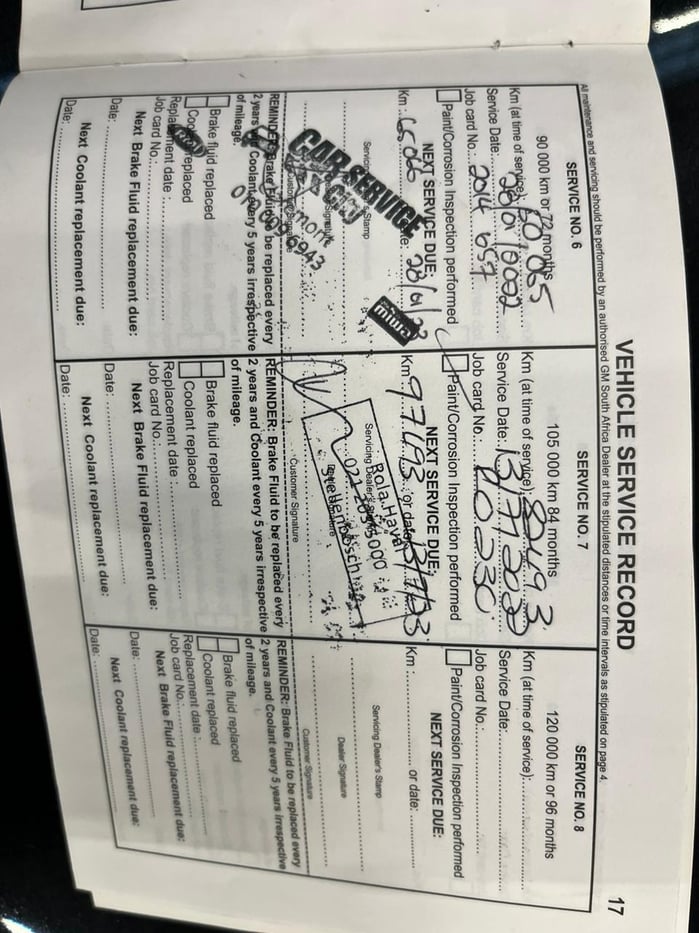 17
VEHICLE SERVICE RECORD
All maintenance and servicing should be performed by an authorised GM South Africa Dealer at the stipulated distances or time intervals as stipulated on page 4.
SERVICE NO. 6
90 000 km or 72 months
Km (at time of service):
Service Date:
Job card No.: 2014 657
Paint/Corrosion Inspection performed
NEXT SERVICE DUE:
Km: 65066 date: 20/01/22
Servicing Stamp
CAR SERVICE
CITY
010 009 6943
Customer Signature
REMINDER: Brake Fluid to be replaced every
2 years and Coolant every 5 years irrespective
of mileage.
Brake fluid replaced
Coolant replaced
Replacement date :
Job card No.:
Next Brake Fluid replacement due:
Date:
Next Coolant replacement due:
Date:
SERVICE NO. 7
105 000 km 84 months
Km (at time of service): 82493
Service Date:
Job card No.: 10230
Paint/Corrosion Inspection performed
NEXT SERVICE DUE:
Km: 97493 or date: 13/7/23
Rola Haval
Servicing Dealer's Stamp
Stellenbosch
Customer Signature
REMINDER: Brake Fluid to be replaced every
2 years and Coolant every 5 years irrespective
of mileage.
Brake fluid replaced
Coolant replaced
Replacement date :
Job card No.:
Next Brake Fluid replacement due:
Date:
Next Coolant replacement due:
Date:
SERVICE NO. 8
120 000 km or 96 months
Km (at time of service):
Service Date:
Job card No.:
Paint/Corrosion Inspection performed
NEXT SERVICE DUE:
Km: or date:
Servicing Dealer's Stamp
Dealer Signature
Customer Signature
REMINDER: Brake Fluid to be replaced every
2 years and Coolant every 5 years irrespective
of mileage.
Brake fluid replaced
Coolant replaced
Replacement date :
Job card No.:
Next Brake Fluid replacement due:
Date:
Next Coolant replacement due:
Date: